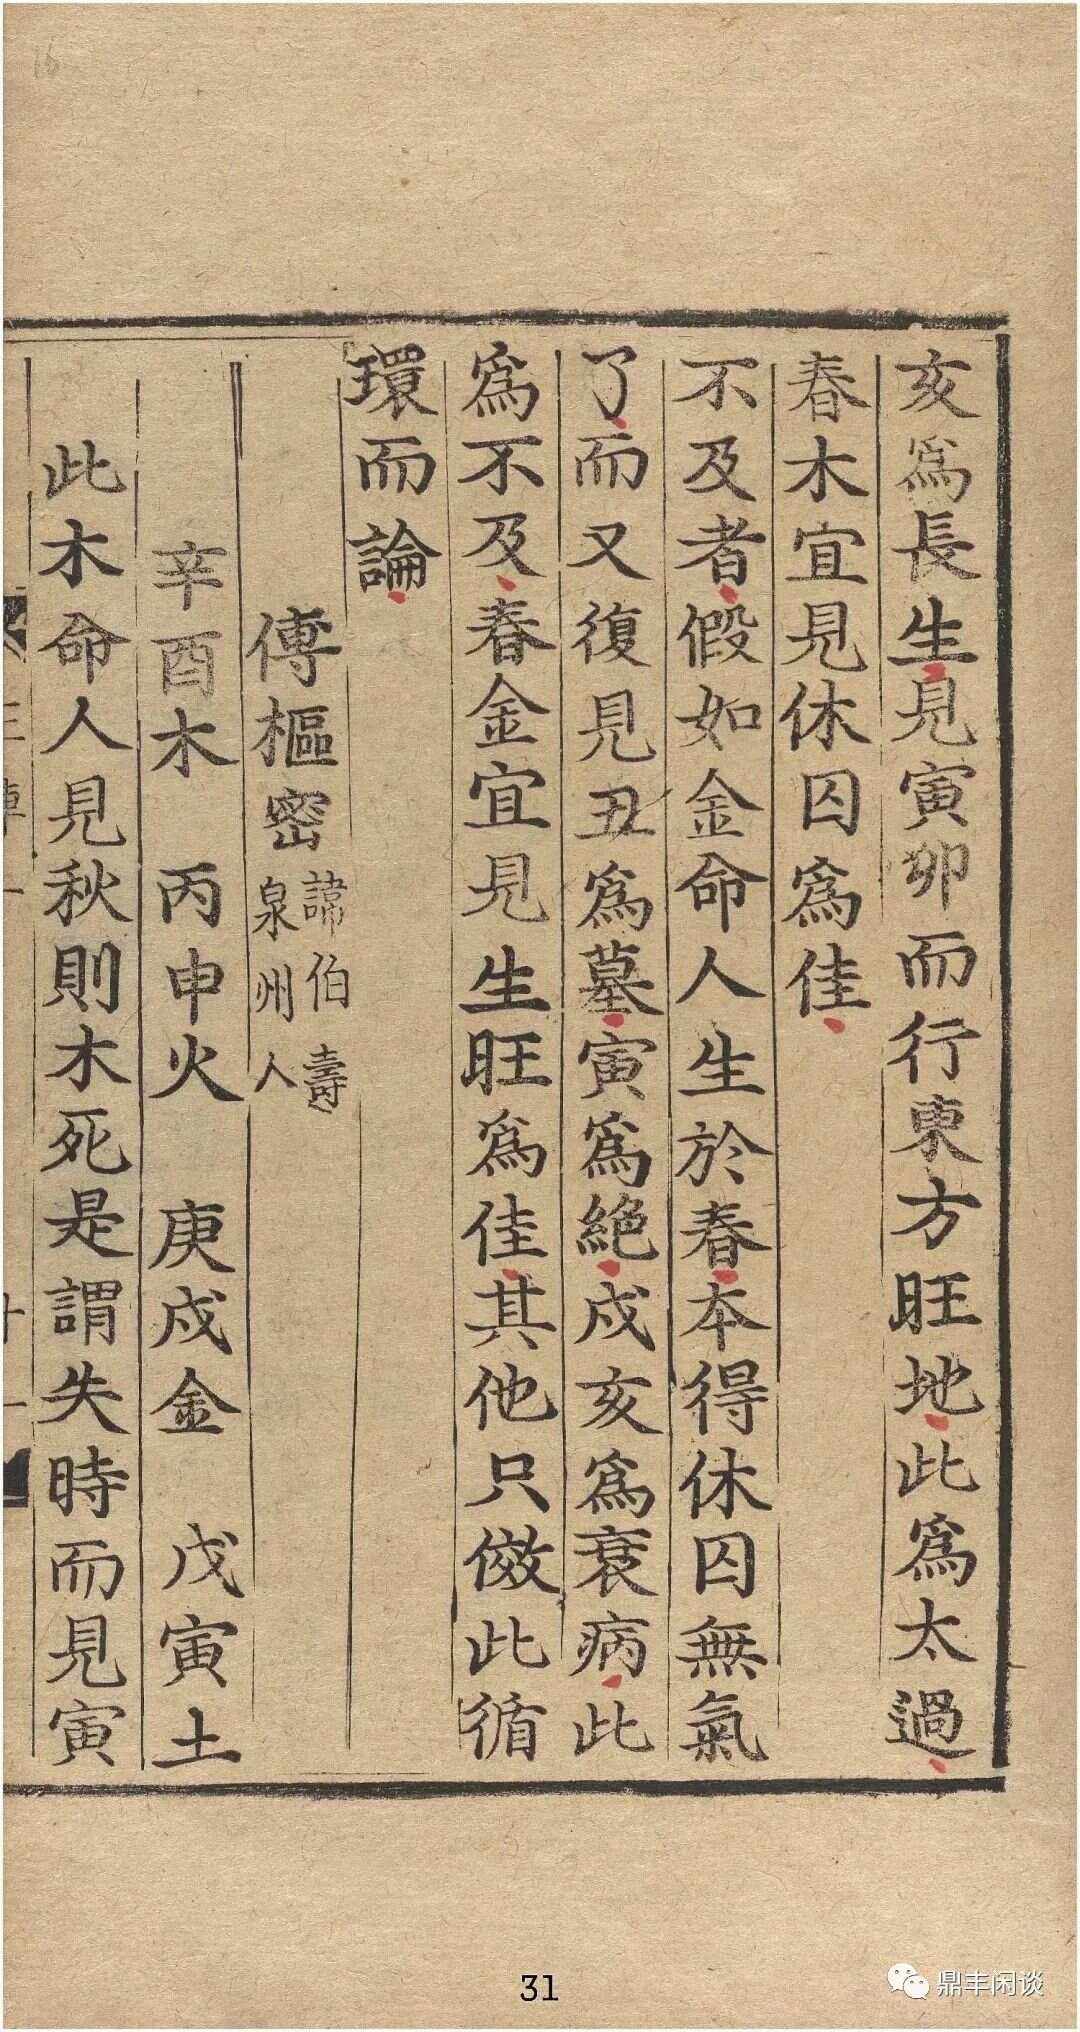 亥爲長生見寅卯而行東方旺地此爲太過
春木宜見休囚爲佳
不及者假如金命人生於春本得休囚無氣
了而又復見丑爲墓寅爲絕戍亥爲衰病此
爲不及春金宜見生旺爲佳其他只傚此循
環而論
傅樞密
諱伯壽
泉州人
辛酉木 丙申火 庚戍金 戊寅土
此木命人見秋則木死是謂失時而見寅
31
鼎丰闲谈